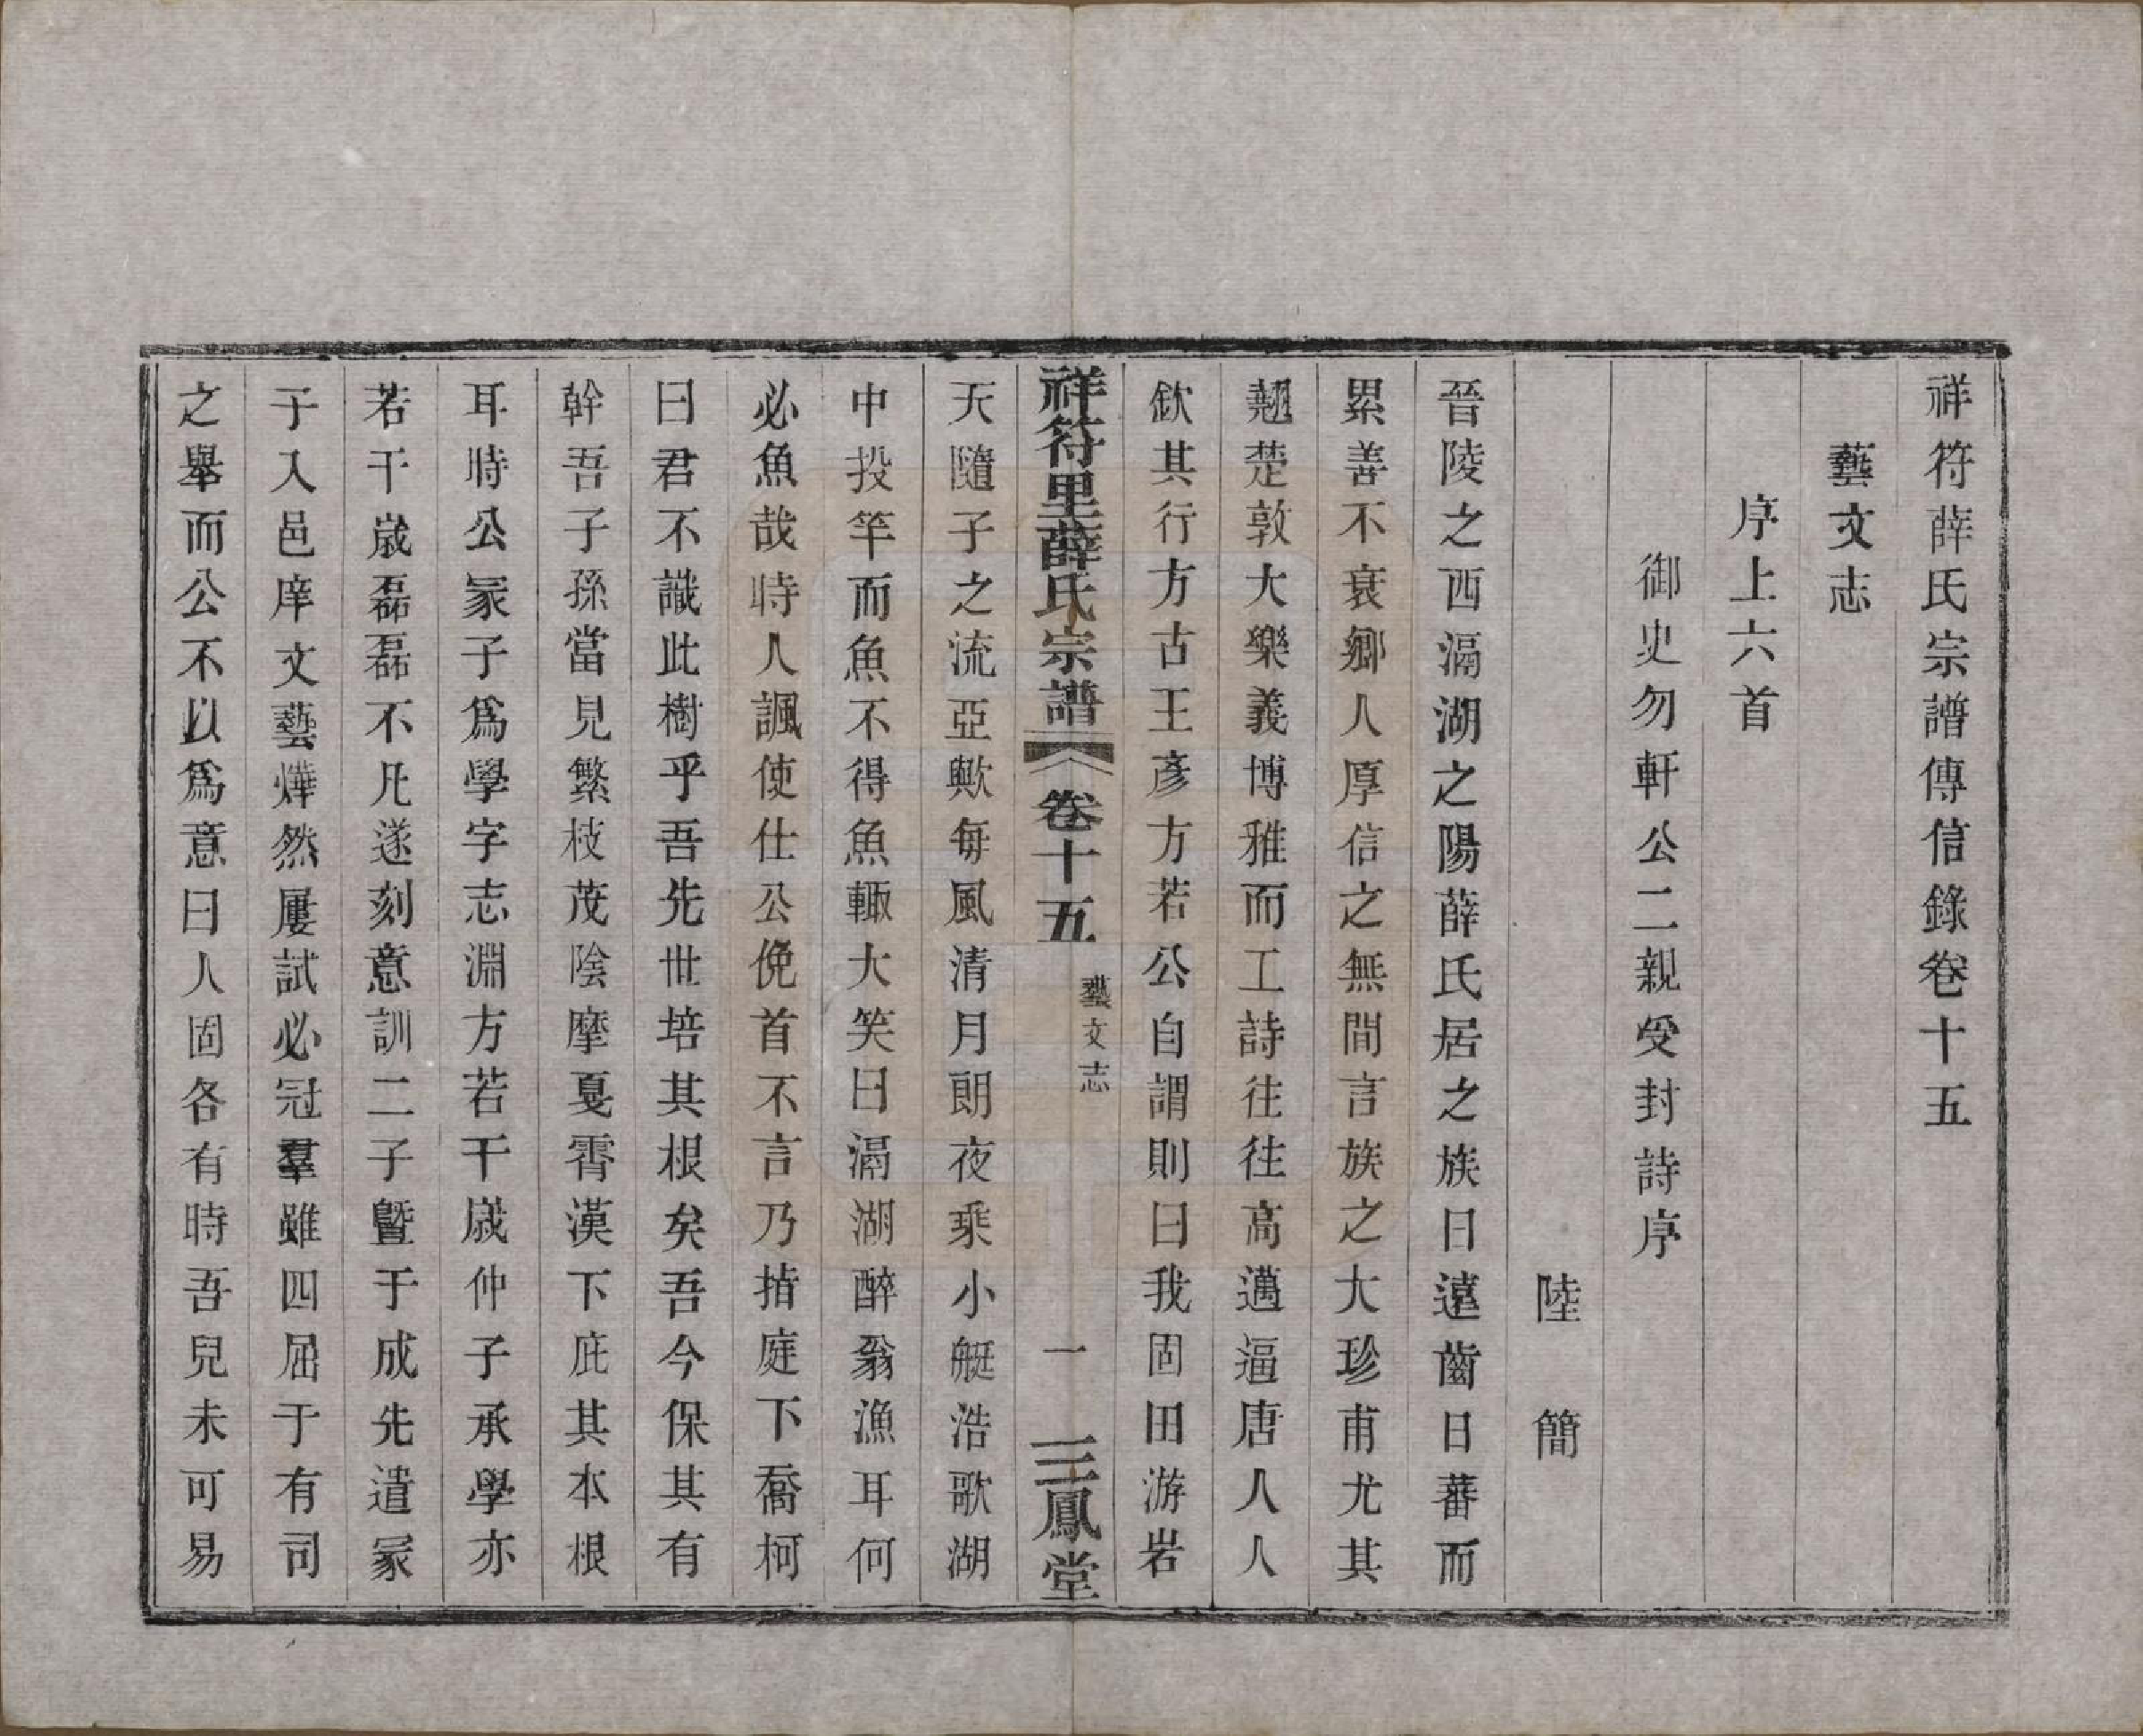 祥符薛氏宗譜傳信錄卷十五
藝文志
序上六首
御史勿軒公二親受封詩序
陸簡
晉陵之西滆湖之陽薛氏居之族日遠齒日蕃而
累善不衰鄉人厚信之無間言族之大珍甫尤其
翹楚敦大樂義博雅而工詩往往高邁逼唐人人
欽其行方古王彥方若公自謂則曰我固田游岩
祥符里薛氏宗譜
卷十五
藝文志
一
三鳳堂
天隨子之流亞歟每風清月朗夜乘小艇浩歌湖
中投竿而魚不得魚輙大笑曰滆湖醉翁漁耳何
必魚哉時人諷使仕公俛首不言乃揹庭下喬柯
曰君不識此樹乎吾先世培其根矣吾今保其有
幹吾子孫當見繁枝茂陰摩戛霄漢下庇其本根
耳時公冢子爲學字志淵方若干歲仲子承學亦
若干歲磊磊不凡遂刻意訓二子曁于成先遣冢
子入邑庠文藝燁然屢試必冠羣雖四屈于有司
之舉而公不以爲意曰人固各有時吾兒未可易